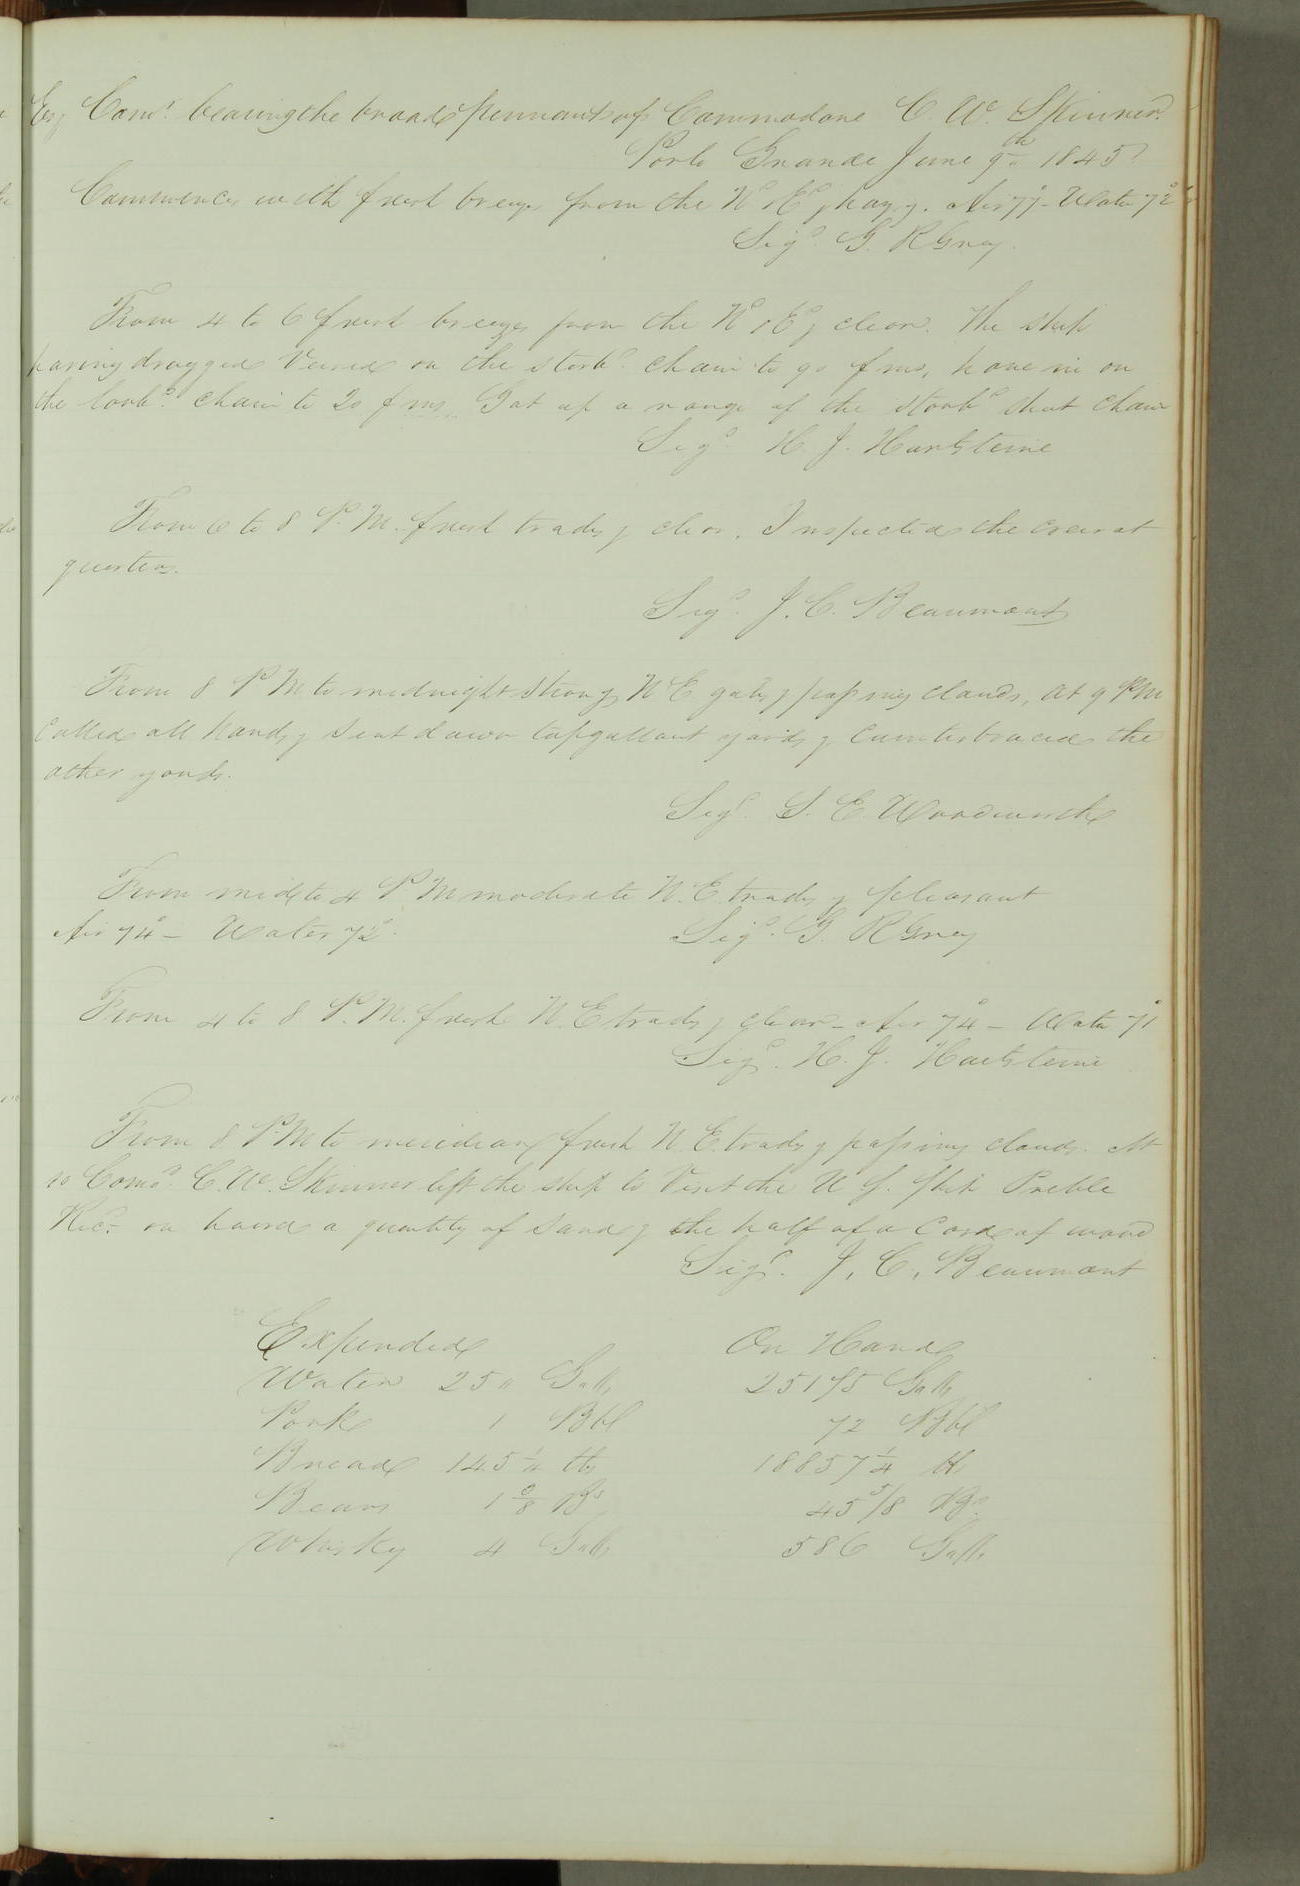 Esq Comr. bearing the broad pennant of Commodore C. W. Skinner.
Porto Grande June 9th 1845
Commences with fresh breezes from the Nd & Ed & hazy. Air 77° - Water 72°
Sigd. G. R Gray.
From 4 to 6 fresh breezes from the Nd & Ed & clear. The ship
having dragged veered on the starbd. chain to 90 fms, hove in on
the larbd. chain to 20 fms. Got up a range of the starbd sheet chain
Sigd. H. J. Hartstene
From 6 to 8 P. M. fresh trades & clear. Inspected the crew at
quarters.
Sigd. J. C. Beaumont
From 8 P M to midnight strong N E gales & passing clouds, at 9 PM
called all hands & sent down topgallant yards & counterbraced the
other yards.
Sigd. S. E. Woodworth
From mid to 4 P. M moderate N. E. trades & pleasant
Air 74° - Water 72°.
Sigd. G. R Gray
From 4 to 8 P. M. fresh N. E trades & clear - Air 74° - Water 71°
Sigd. H. J. Hartstene
From 8 P. M to meridian fresh N. E. trades & passing clouds. At
10 Comd. C. W. Skinner left the ship to visit the U S. Ship Preble
Recd. on board a quantity of sand & the half of a cord of wood
Sigd. J. C. Beaumont
Expended On Hand
Water 25 " Galls 25175 Galls
Pork 1 Bbl 72 Bbl
Bread 145 1/4 lbs 18857 1/4 lbs
Beans 1 3/8 Bs 45 5/8 Bs.
Whisky 4 Galls 586 Galls